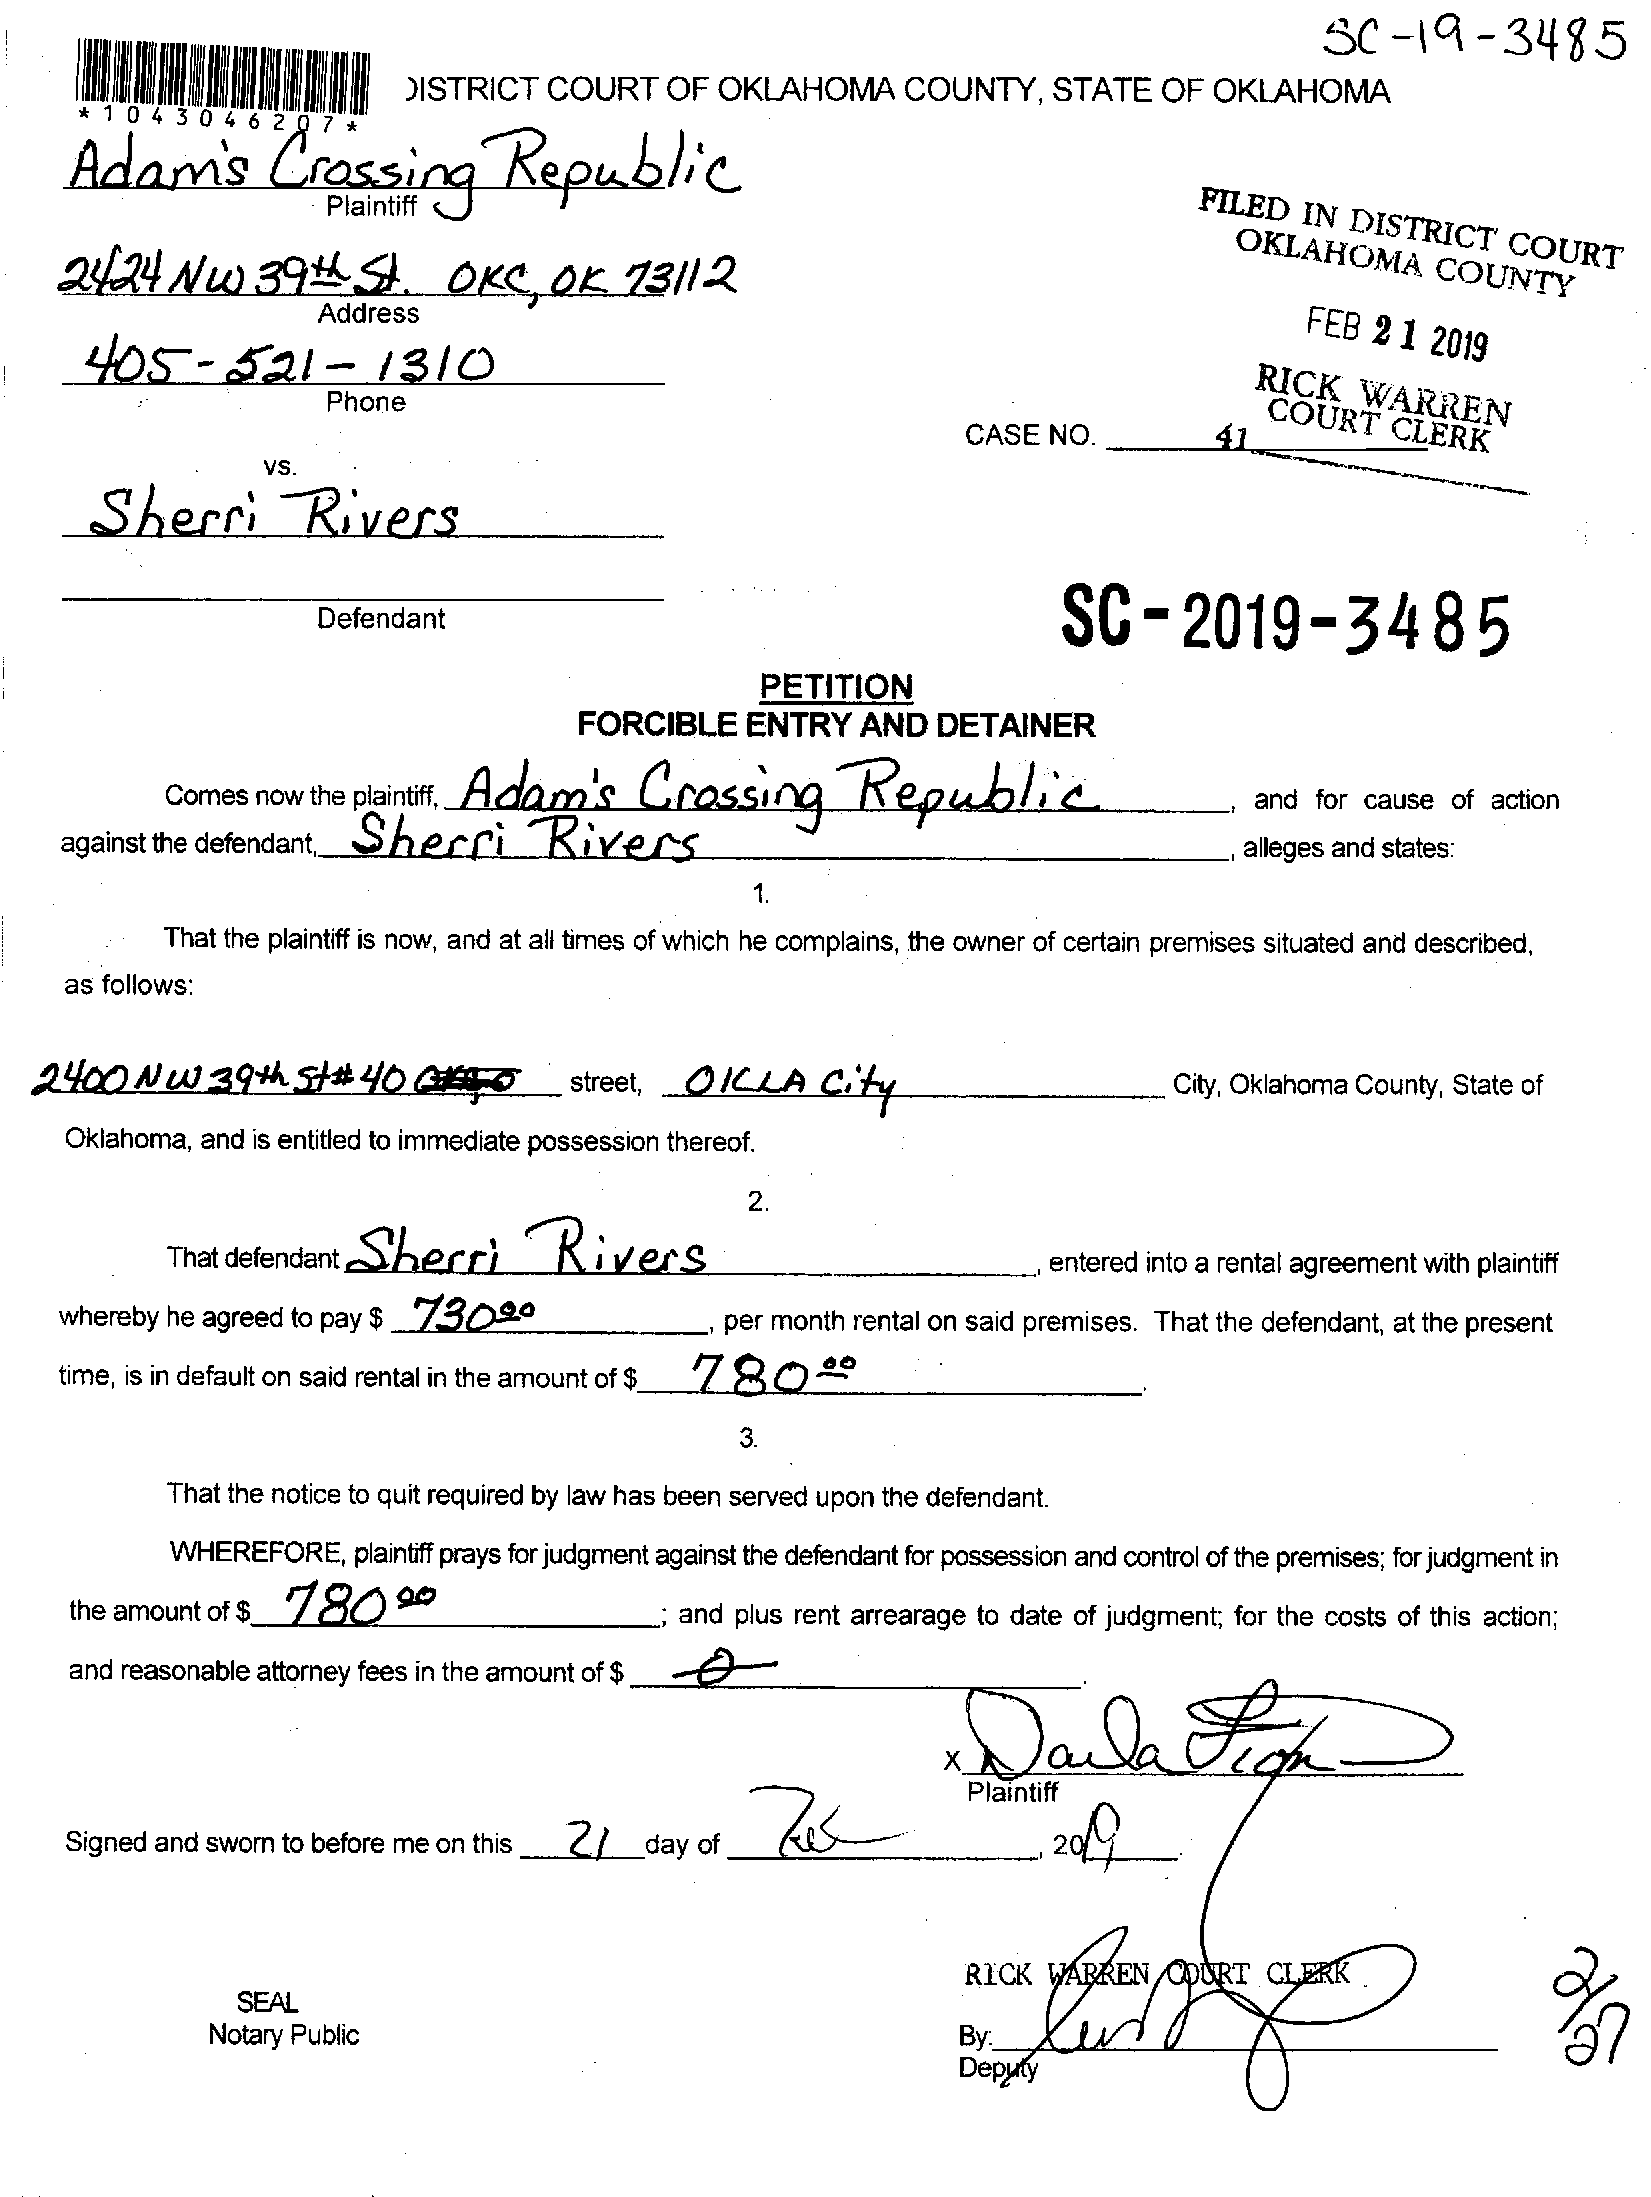 SC-19-3485
*1043046207*
DISTRICT COURT OF OKLAHOMA COUNTY, STATE OF OKLAHOMA
Adam's Crossing Republic
Plaintiff
2424 NW 39th St. OKC, OK 73112
Address
405-521-1310
Phone
FILED IN DISTRICT COURT
OKLAHOMA COUNTY
FEB 21 2019
RICK WARREN
COURT CLERK
CASE NO. 41
vs.
Sherri Rivers
Defendant
SC-2019-3485
PETITION
FORCIBLE ENTRY AND DETAINER
Comes now the plaintiff, Adam's Crossing Republic, and for cause of action
against the defendant, Sherri Rivers, alleges and states:
1.
That the plaintiff is now, and at all times of which he complains, the owner of certain premises situated and described,
as follows:
2400 NW 39th St # 40 street, OKLA City City, Oklahoma County, State of
Oklahoma, and is entitled to immediate possession thereof.
2.
That defendant Sherri Rivers, entered into a rental agreement with plaintiff
whereby he agreed to pay $ 730.00, per month rental on said premises. That the defendant, at the present
time, is in default on said rental in the amount of $ 780.00.
3.
That the notice to quit required by law has been served upon the defendant.
WHEREFORE, plaintiff prays for judgment against the defendant for possession and control of the premises; for judgment in
the amount of $ 780.00; and plus rent arrearage to date of judgment; for the costs of this action;
and reasonable attorney fees in the amount of $ 0.
X Darla
Plaintiff
Signed and sworn to before me on this 21 day of Feb, 2019.
RICK WARREN COURT CLERK
SEAL
Notary Public
By:
Deputy
2/27